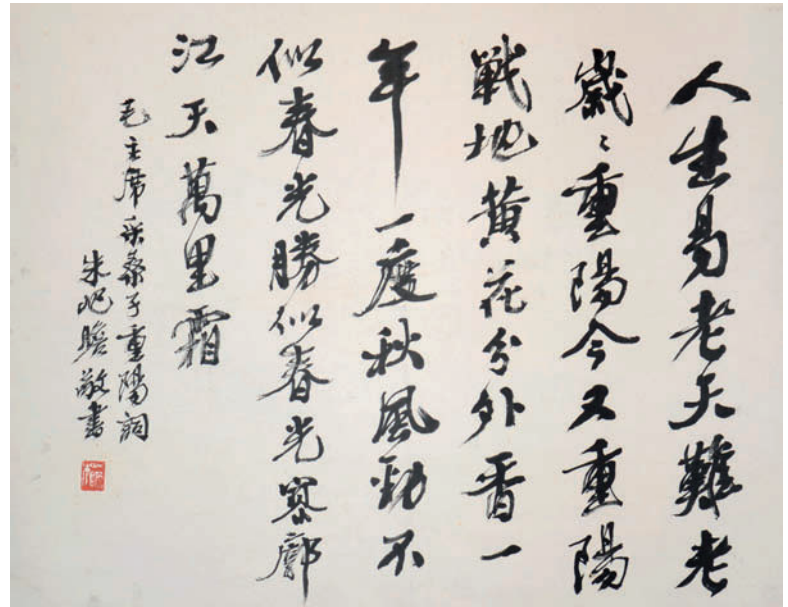 人生易老天難老
歲〻重陽今又重陽
戰地黄花分外香一
年一度秋風勁不
似春光勝似春光寥廓
江天萬里霜
毛主席采桑子重陽詞
朱屺瞻敬書